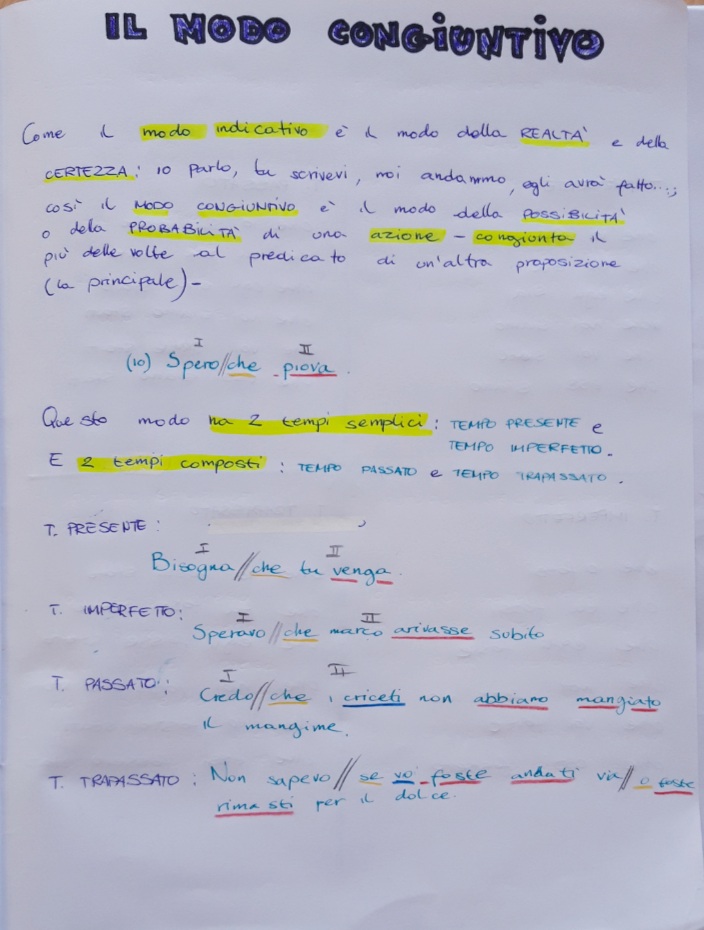 IL MODO CONGIUNTIVO
Come il modo indicativo è il modo della REALTÀ e della
CERTEZZA: io parlo, tu scrivevi, noi andammo, egli avrà fatto...;
così il MODO CONGIUNTIVO è il modo della POSSIBILITÀ
o della PROBABILITÀ di una azione - congiunta il
più delle volte al predicato di un'altra proposizione
(la principale)-
I II
(io) Spero//che piova.
Questo modo ha 2 tempi semplici: TEMPO PRESENTE e
TEMPO IMPERFETTO.
E 2 tempi composti: TEMPO PASSATO e TEMPO TRAPASSATO.
T. PRESENTE:
I II
Bisogna//che tu venga.
T. IMPERFETTO:
I II
Speravo//che marco arivasse subito
T. PASSATO:
I II
Credo//che i criceti non abbiano mangiato
il mangime.
T. TRAPASSATO: Non sapevo//se voi foste andati via//o foste
rimasti per il dolce.